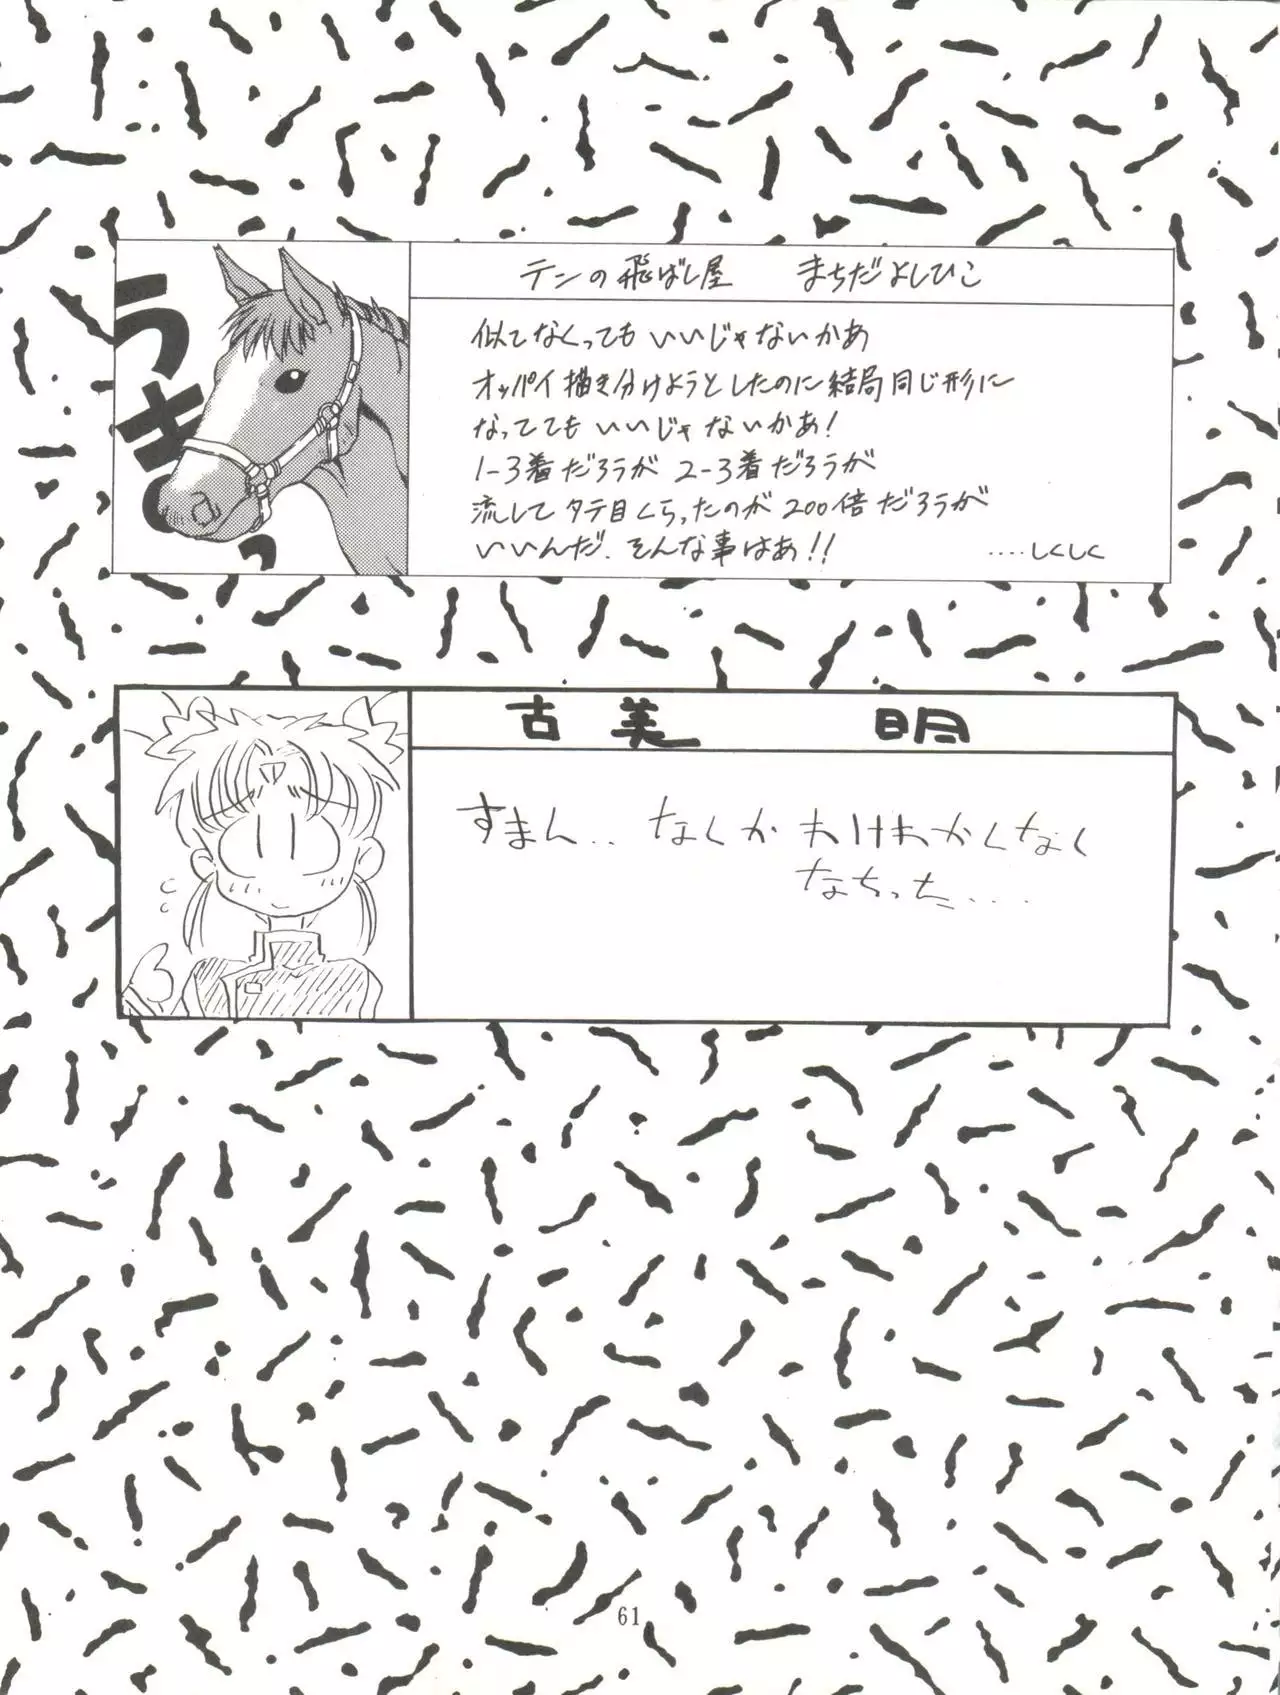 テンの飛ばし屋 まちだよしひこ
うきっ
似てなくってもいいじゃないかあ
オッパイ描き分けようとしたのに結局同じ形に
なっててもいいじゃないかあ!
1-3着だろうが 2-3着だろうが
流してタテ目くらったのが200倍だろうが
いいんだ、そんな事はあ!! ····しくしく
古美 明
すまん... なくかわけわかくなく
なちった....
61